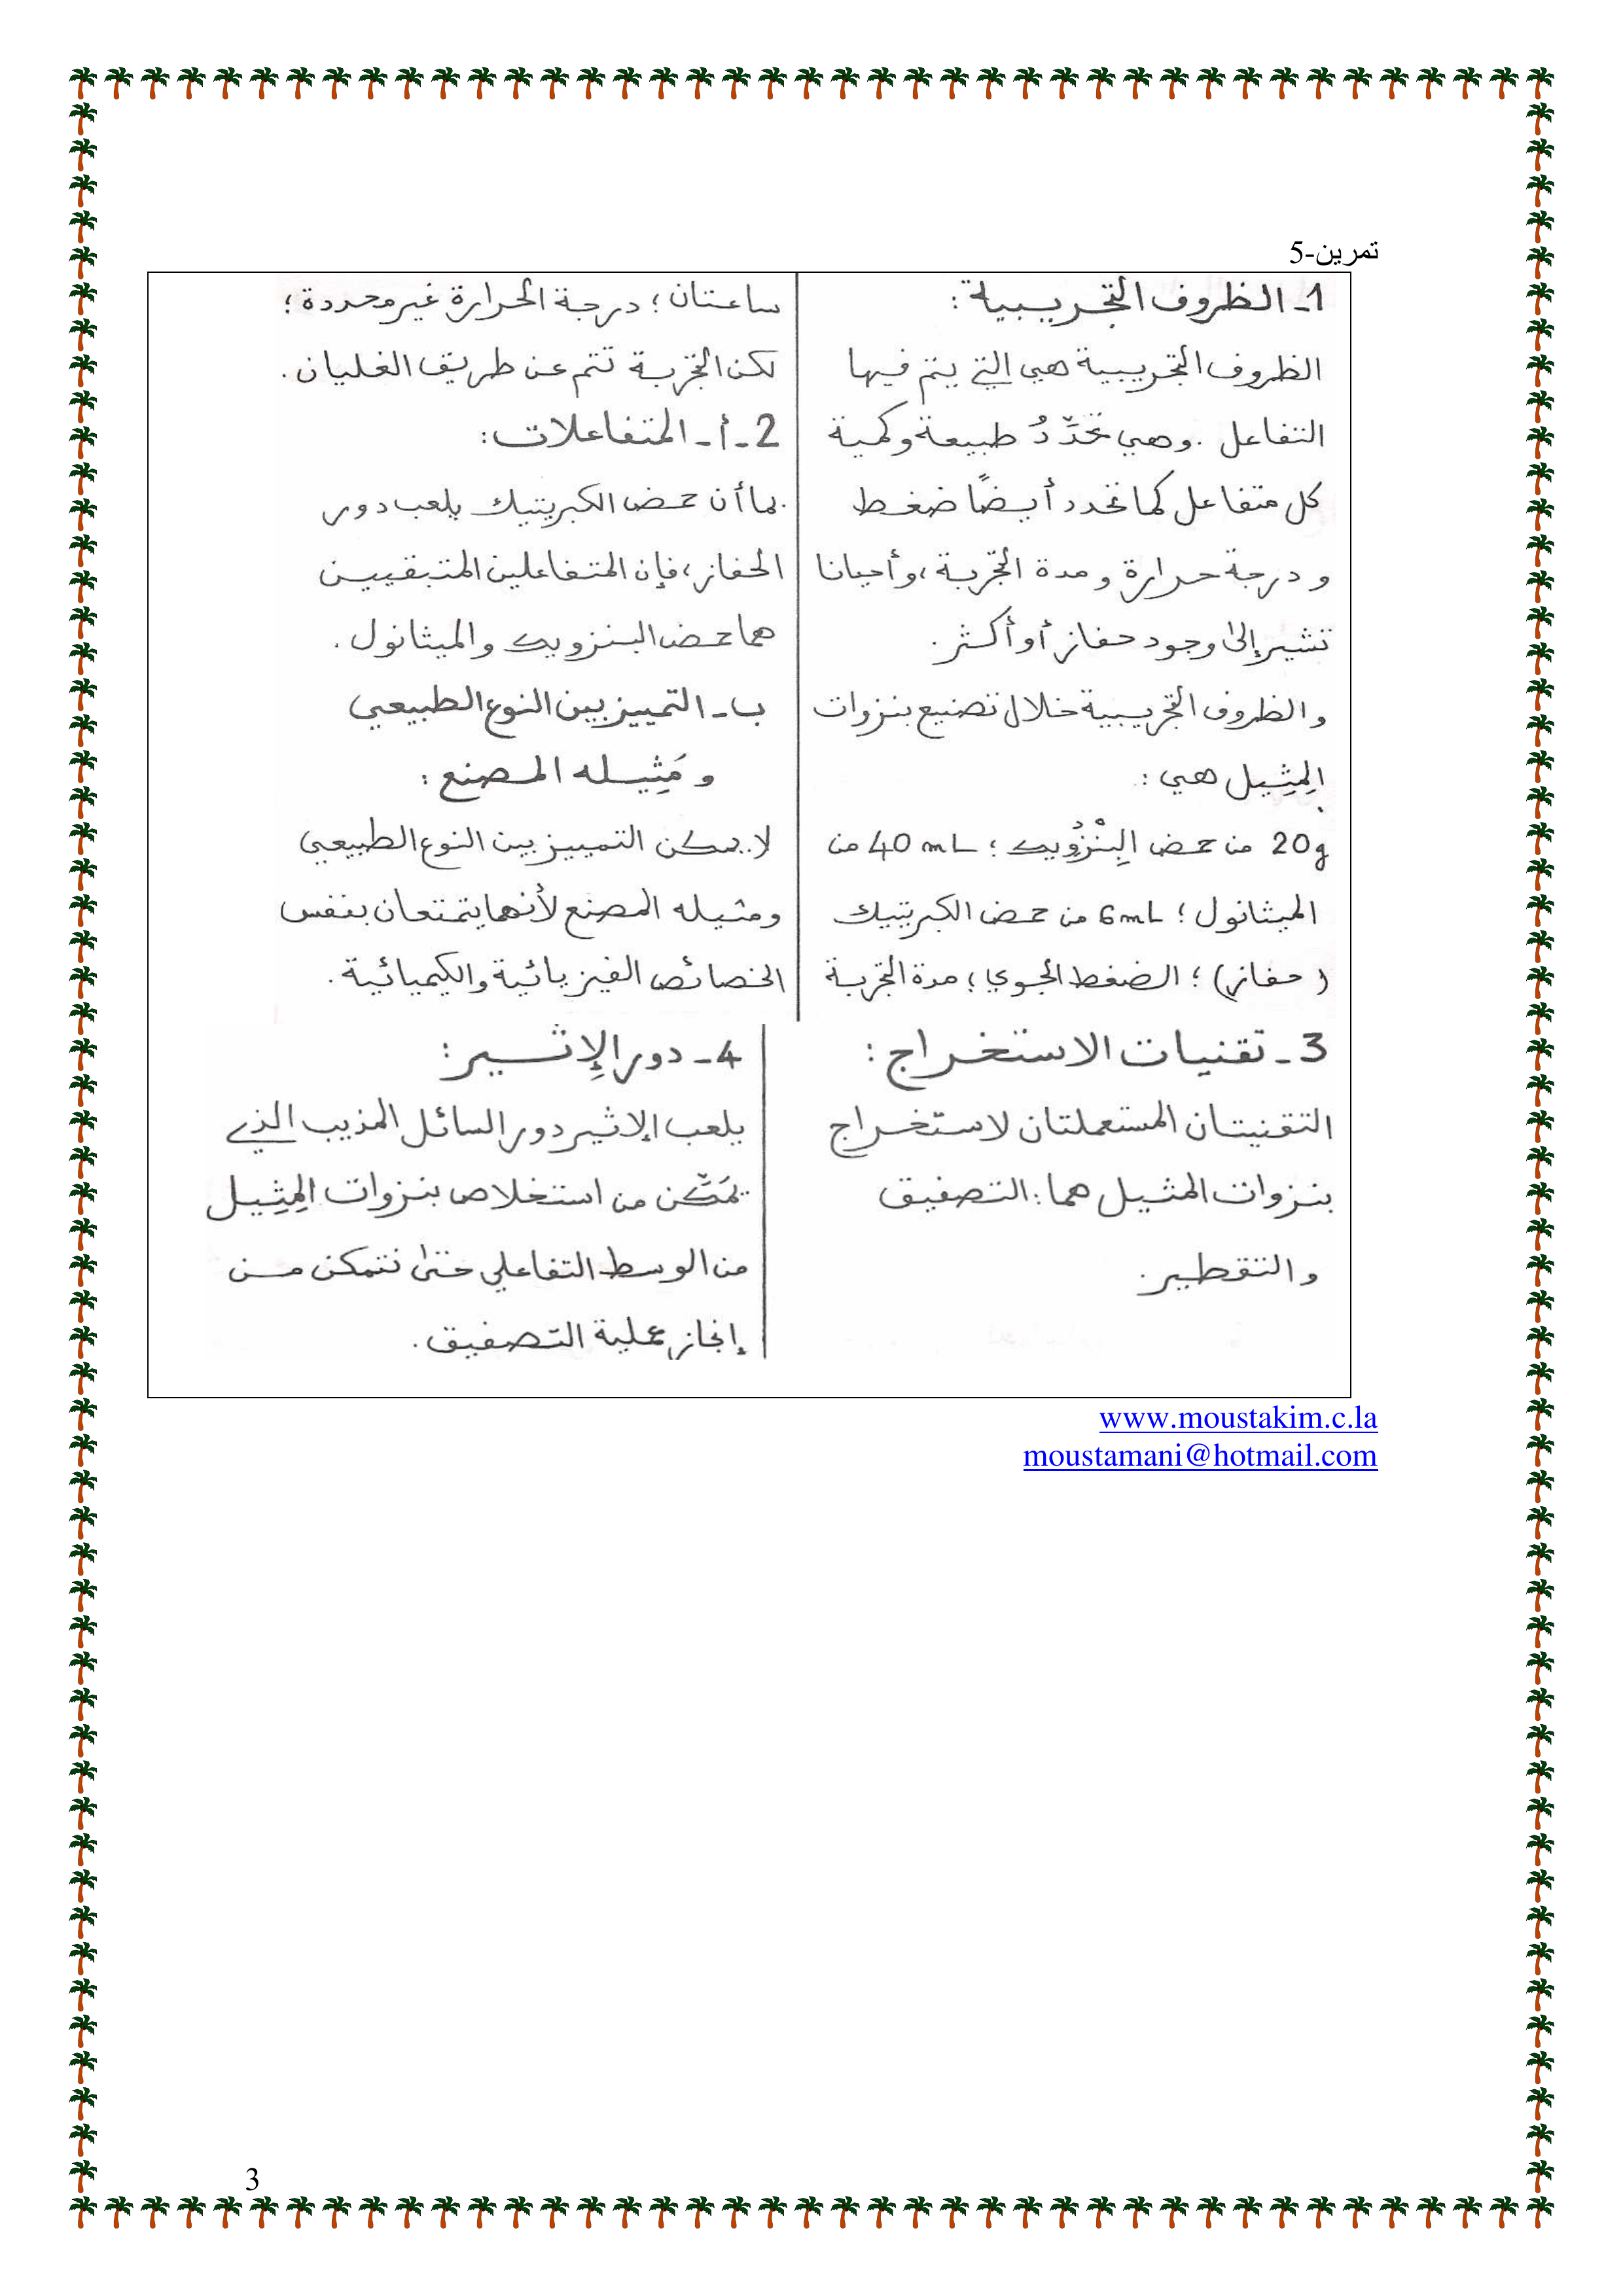 تمرين-5
1- الظروف التجريبية :
الظروف التجريبية هي التي يتم فيها
التفاعل . وهي تحدِّدُ طبيعة وكمية
كل متفاعل كما تحدد أيضًا ضغط
و درجة حرارة و مدة التجربة ، وأحيانا
تشير إلى وجود حفاز أو أكثر .
والظروف التجريبية خلال تصنيع بنزوات
المِثِيل هي :
20g من حمض البِنْزُويك ؛ 40 mL من
الميثانول ؛ 6mL من حمض الكبريتيك
( حفاز ) ؛ الضغط الجوي ؛ مدة التجربة
ساعتان ؛ درجة الحرارة غير محددة ؛
لكن التجربة تتم عن طريق الغليان .
2- أ- المتفاعلات :
بما أن حمض الكبريتيك يلعب دور
الحفاز ، فإن المتفاعلين المتبقيين
هما حمض البنزويك والميثانول .
ب- التمييز بين النوع الطبيعي
و مَثِيله المصنع :
لا يمكن التمييز بين النوع الطبيعي
ومثيله المصنع لأنهما يتمتعان بنفس
الخصائص الفيزيائية والكيميائية .
3- تقنيات الاستخراج :
التقنيتان المستعملتان لاستخراج
بنزوات المثيل هما : التصفيق
والتقطير .
4- دور الإثير :
يلعب الإثير دور السائل المذيب الذي
يمَكّن من استخلاص بنزوات المِثِيل
من الوسط التفاعلي حتى نتمكن من
إنجاز عملية التصفيق .
www.moustakim.c.la
moustamani@hotmail.com
3